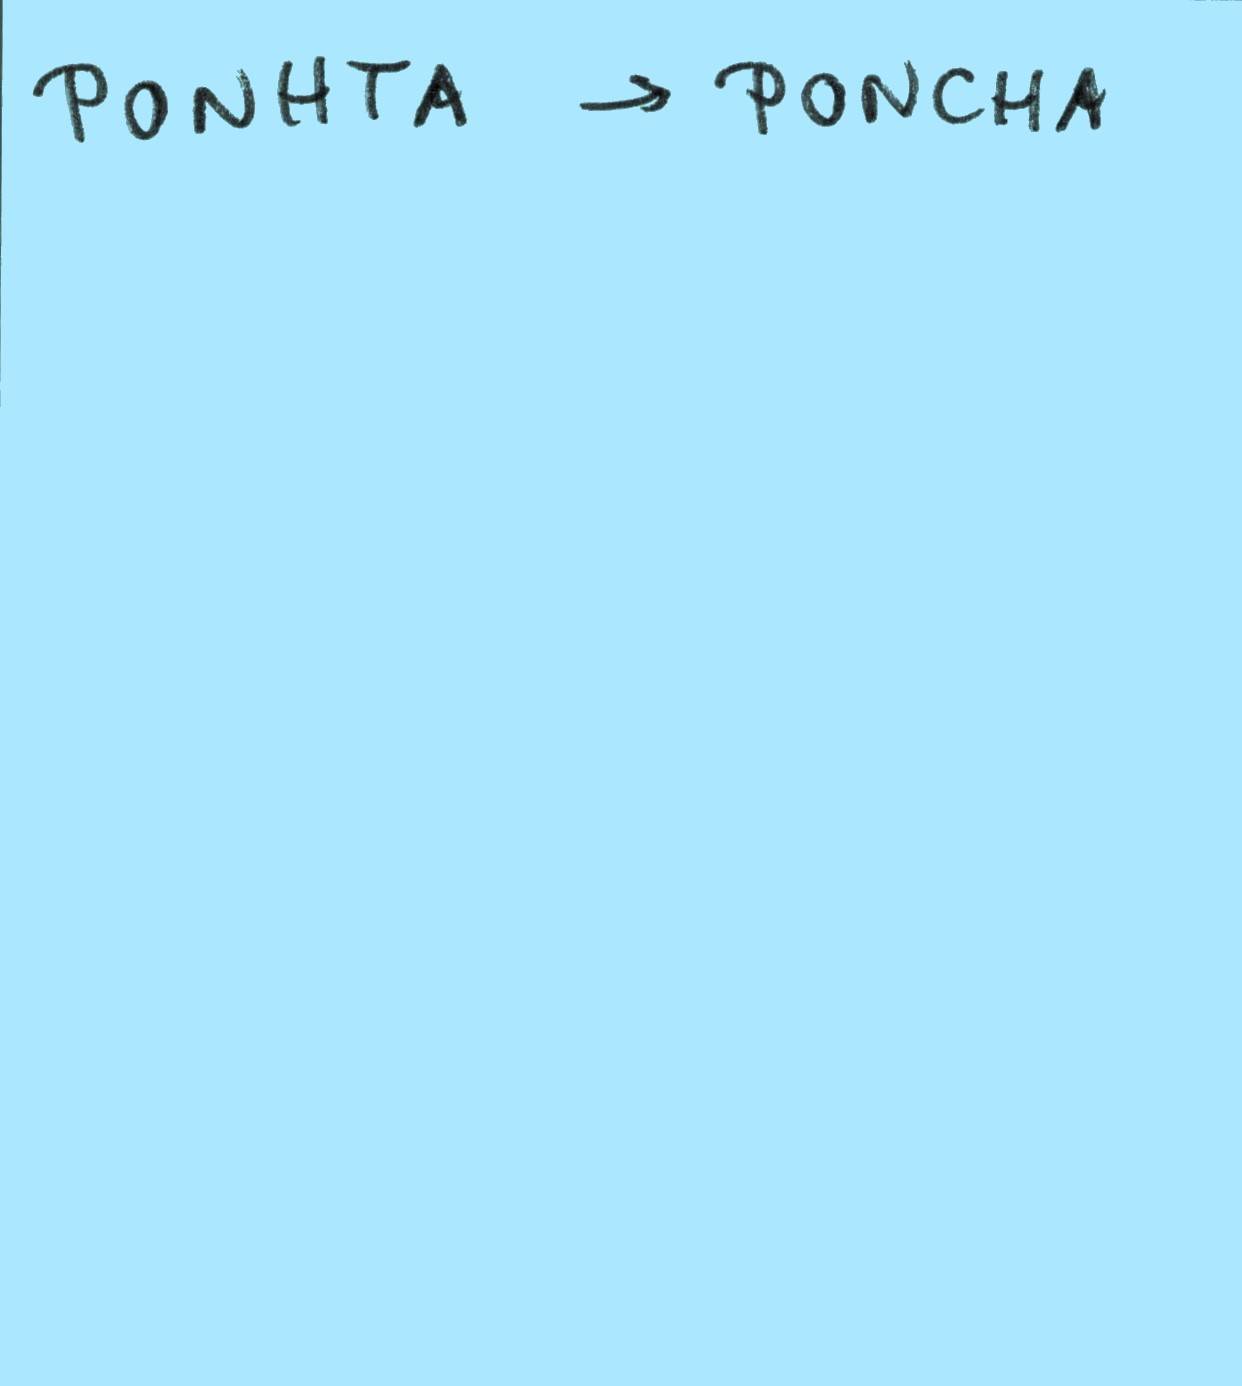 PONHTA → PONCHA